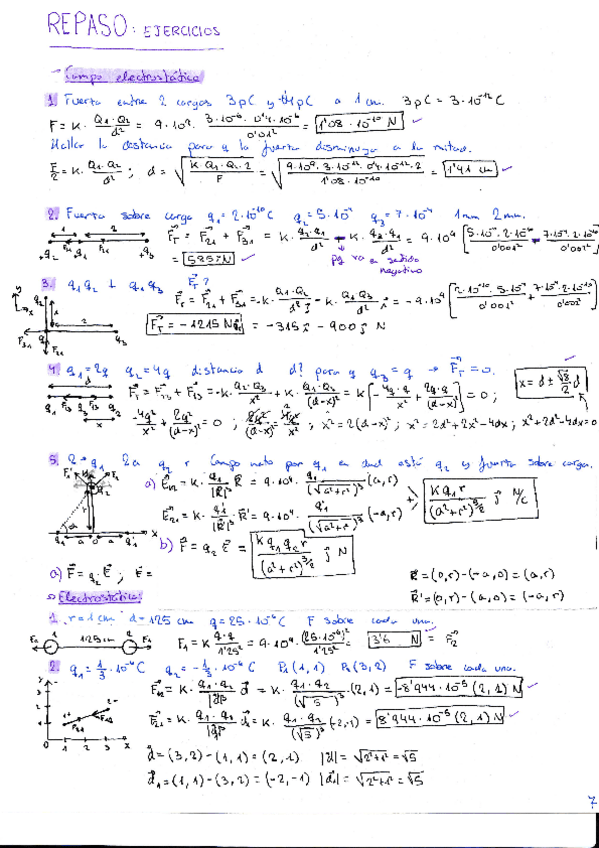 REPASO: EJERCICIOS
- Campo electrostático
1. Fuerza entre 2 cargos 3pC y 0'4pC a 1 cm. 3pC = 3·10⁻¹² C
F = K · Q₁·Q₂/d² = 9·10⁹ · 3·10⁻⁶ · 0'4·10⁻⁶/0'01² = 1'08·10⁻¹⁰ N
Hallar la distancia para q la fuerza disminuya a la mitad.
F/2 = K · Q₁·Q₂/d² ; d = √(K·Q₁·Q₂·2/F) = √(9·10⁹·3·10⁻¹²·0'4·10⁻¹²·2/1'08·10⁻¹⁰) = 1'41 cm
2. Fuerza sobre carga q₁ = 2·10⁻¹⁰ C q₂ = 5·10⁻⁷ q₃ = 7·10⁻⁷ 1mm 2mm.
F_T = F₂₁ + F₃₁ = K · q₂·q₁/d² - K · q₃·q₁/d² = 9·10⁹
Pq va en sentido
negativo
3. q₁q₂ ⊥ q₁q₃ F_T?
F_T = F₂₁ + F₃₁ = -K · Q₁·Q₂/d² j - K · Q₁Q₃/d² i = -9·10⁹
= -315 i - 900 j N
4. q₁=2q q₂=4q distancia d d? para q q₃=q → F_T=0.
F_T = F₁₃ + F₂₃ = -K · Q₂·Q₃/x² + K · Q₁·Q₃/(d-x)² = K [-4q·q/x² + 2q·q/(d-x)²] = 0 ;
x² = 2(d-x)² ; x² = 2d²+2x²-4dx ; x²+2d²-4dx=0
5. 2 q₁ 2a q₂ r Campo neto por q₁ en dnd está q₂ y fuerza sobre carga.
a) E₁₂ = K · q₁/|R|³ R = 9·10⁹ · q₁/(√(a²+r²))³ (a,r)
K q₁ r/(a²+r²)^(3/2) j N/C
E₂₁ = K · q₁'/|R'|³ · R' = 9·10⁹ · q₁'/(√(a²+r²))³ (-a,r)
b) F = q₂ E = K q₁ q₂ r/(a²+r²)^(3/2) j N
a) F = q₂ E ; E =
R = (0,r)-(-a,0) = (a,r)
R' = (0,r)-(a,0) = (-a,r)
Electrostática
1. r=1cm d=125 cm q=25·10⁻⁶ C F sobre cada una.
F₁ = K q·q/1'25² = 9·10⁹ · (25·10⁻⁶)²/1'25² = 3'6 N = F₂
2. q₁ = 1/3·10⁻⁶ C q₂ = -1/3·10⁻⁶ C P₁(1,1) P₂(3,2) F sobre cada una.
F₁₂ = K · q₁·q₂/|d|³ d = K · q₁·q₂/(√5)³ (2,1) = -8'944·10⁻⁵ (2,1) N
F₂₁ = K · q₁·q₂/|d|³ d₁ = K · q₁·q₂/(√5)³ (-2,-1) = 8'944·10⁻⁵ (2,1) N
d = (3,2)-(1,1) = (2,1) |d| = √(2²+1²) = √5
d₁ = (1,1)-(3,2) = (-2,-1) |d₁| = √(2²+1²) = √5
7